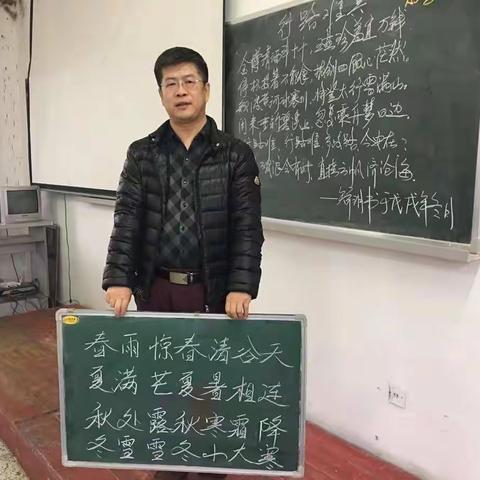 行路难 其
金樽清酒斗十千 玉盘珍羞直万钱
停杯投箸不能食 拔剑四顾心茫然。
欲渡黄河冰塞川，将登太行雪满山。
闲来垂钓碧溪上，忽复乘舟梦日边。
行路难，行路难，多歧路，今安在？
破浪会有时，直挂云帆济沧海。
书于戊戌年冬月
春雨惊春清谷天
夏满芒夏暑相连
秋处露秋寒霜降
冬雪雪冬小大寒